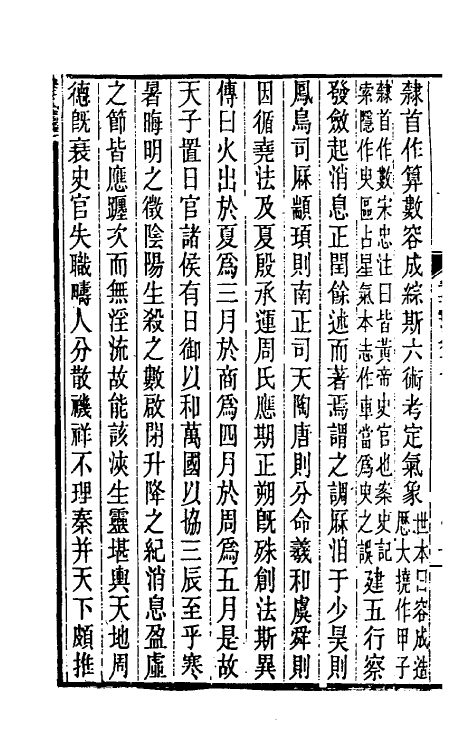 隸首作算數容成綜斯六術考定氣象世本曰容成造
歷大撓作甲子
隸首作數宋忠注曰皆黃帝史官也案史記
索隱作臾區占星氣本志作車當爲臾之誤建五行察
發斂起消息正閏餘述而著焉謂之調厤洎于少昊則
鳳鳥司厤顓頊則南正司天陶唐則分命羲和虞舜則
因循堯法及夏殷承運周氏應期正朔旣殊創法斯異
傳曰火出於夏爲三月於商爲四月於周爲五月是故
天子置日官諸侯有日御以和萬國以協三辰至乎寒
暑晦明之徵陰陽生殺之數啟閉升降之紀消息盈虛
之節皆應躔次而無淫流故能該浹生靈堪輿天地周
德旣衰史官失職疇人分散禨祥不理秦并天下頗推